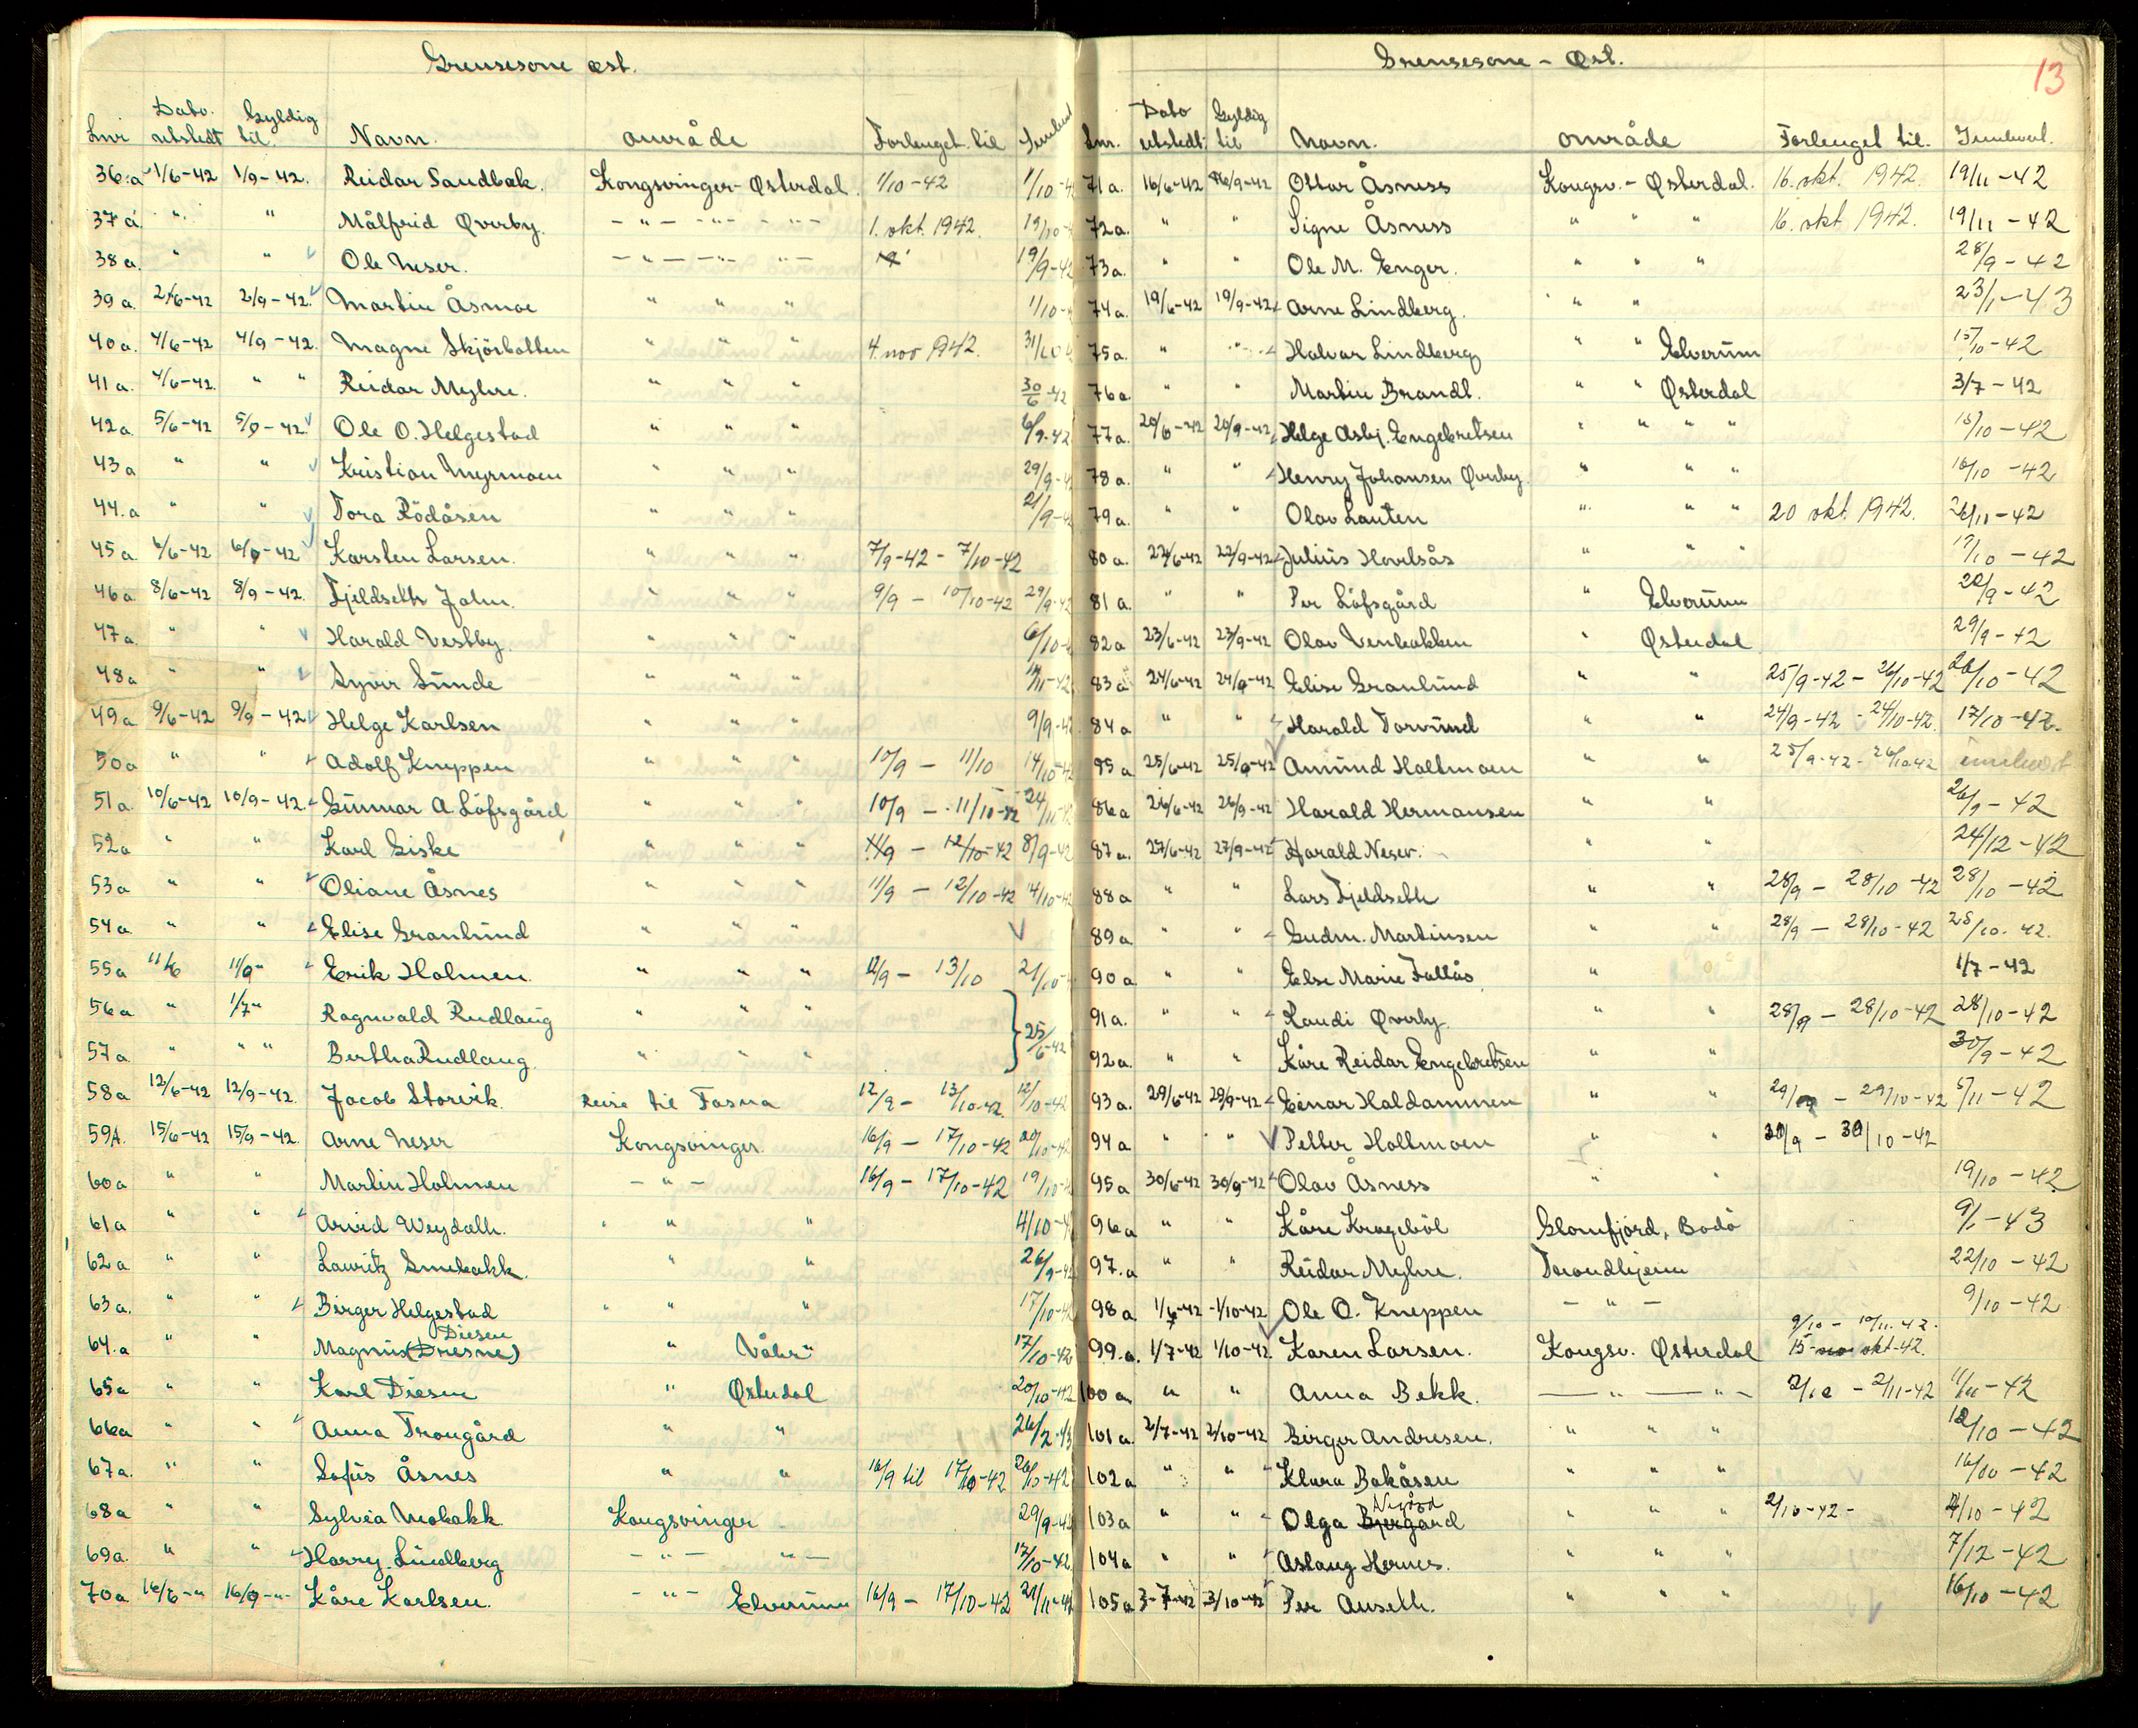 Grensesone øst.
Lnr Dato utstedt Gyldig til. Navn. område Forlenget til Innlevert
36.a 1/6-42 1/9-42. Reidar Sandbæk. Kongsvinger-Østerdal. 1/10-42 1/10-4
37a. " " Målfrid Øverby. -"- -"- -"- 1. okt. 1942. 19/10-4
38a. " " Ole Neser. -"- -"- -"- 19/9-42
39a. 2/6-42 2/9-42. Martin Åsmoe " " " 1/10-4
40a. 4/6-42 4/9-42. Magne Skjörbotten " " " 4. nov 1942. 31/10
41a. 4/6-42. " " Reidar Myhre. " " " 30/6-42
42a. 5/6-42 5/9-42. Ole O. Helgestad " " " 6/9-42
43a " " Kristian Myrmoen " " " 29/9-4
44.a " " Tora Rödåsen " " " 21/9-4
45a 6/6-42 6/9-42 Karsten Larsen. " " " 7/9-42 - 7/10-42
46a 8/6-42 8/9-42. Fjeldseth John. " " " 9/9 - 10/10-42 29/9-42
47a. " " Harald Vestby. " " " 6/10-4
48a " " Syver Sünde " " " /11-42
49a 9/6-42 9/9-42 Helge Karlsen " " " 9/9-42
50a " " Adolf Kneppen " " " 10/9 - 11/10 14/10-42
51a. 10/6-42 10/9-42. Günnar A Löfsgård " " " 10/9 - 11/10-42 24/11-42
52a " " Karl Giske " " " 11/9 - 12/10-42 8/9-42
53a " " Oliane Åsnes " " " 11/9 - 12/10-42 14/10-42
54a " " Elise Granlünd " " "
55a 11/6 11/9" Erik Holmen. " " " 12/9 - 13/10 21/10-4
56a " 1/7" Ragnvald Rudlaug " " " 25/6-42
57a " " " Bertha Rudlaug. " " "
58a 12/6-42 12/9-42. Jacob Storvik. Reise til Tosna 12/9 - 13/10-42. 12/10-42
59A. 15/6-42 15/9-42. Arne Neser Kongsvinger. 16/9 - 17/10-42 20/10-42
60a " " Martin Holmen -"- 16/9 - 17/10-42 19/10-4
61a " " Arvid Weydahl. " " " 4/10-4
62a " " Lauritz Smebakk. " " 26/9-42
63a. " " Birger Helgestad " " " 17/10-42
Diesen
64.a " " Magnüs (Dresne) " Våler" 17/10-42
65a " " Karl Diesen " Østerdal 20/10-42
66a " " Anna Trongård " " 26/2-43
67a. " " Sofüs Åsnes " " 16/9 til 17/10-42 26/10-42
68a " " Sylvia Mobakk Kongsvinger 29/9-42
69a. " " Harry Lindberg -"- "- 17/10-42
70a 16/6-" 16/9-"- Kåre Karlsen. -"- Elverum 16/9 - 17/10-42 21/11-42
Grensesone - Øst.
13
Lnr. Dato utstedt: Gyldig til Navn. område Forlenget til. Innlevert.
71a. 16/6-42 16/9-42 Ottar Åsness Kongsv.- Østerdal. 16. okt. 1942. 19/11-42
72a. " " Signe Åsness " " " 16. okt 1942. 19/11-42
73a. " " Ole M. Enger. " " " 28/9-42
74a. 19/6-42 19/9-42 Arne Lindberg. " " 23/1-43
75a. " " Halvar Lindberg " " Elverum 15/10-42
76a. " " Martin Brandt. " " Østerdal 3/7-42
77a. 20/6-42 20/9-42 Helge Asbj. Engebretsen " " " " 15/10-42
78a. " " Henry Johansen Øverby. " " " 10/10-42
79a. " " Olav Lauten " " " 20 okt. 1942. 26/11-42
80a. 22/6-42 22/9-42 Julius Hovelsås " " " 17/10-42
81a. " " Per Löfsgård " Elverum 22/9-42
82a 23/6-42 23/9-42 Olav Venbakken " Østerdal 29/9-42
83a 24/6-42 24/9-42 Elise Granlünd " " 25/9-42 - 26/10-42 26/10-42
84a " " Harald Torvünd " " 24/9-42 - 24/10-42. 17/10-42.
85a 25/6-42 25/9-42 Amünd Holtmoen " " 25/9-42 - 26/10-42 innlevert
86a 26/6-42 26/9-42 Harald Hermansen " " 26/9-42
87a. 27/6-42 27/9-42 Harald Neser. " " 24/12-42
88a " " Lars Fjeldseth " " 28/9 - 28/10-42 28/10-42
89a " " Gudm. Martinsen " " 28/9 - 28/10-42 28/10-42.
90a " " Else Marie Fallås. " " 1/7-42
91a. " " Randi Øverby. " " 28/9 - 28/10-42 28/10-42
92a. " " Kåre Reidar Engebretsen " " 30/9-42
93a. 29/6-42 29/9-42 Einar Haldammen " " 29/9 - 29/10-42 5/11-42
94a " " Petter Holtmoen " " 30/9 - 30/10-42
95a 30/6-42 30/9-42 Olav Åsness " " 19/10-42
96a " " Kåre Krogeböl Glomfjord, Bodö 9/1-43
97.a " " Reidar Myhre. Trondhjem 22/10-42
98a 1/6-42 -1/10-42 Ole O. Kneppen -"- 9/10-42
9/10 - 10/11-42.
99.a. 1/7-42 1/10-42. Karen Larsen. Kongsv. Østerdal 15- nov okt-42.
100a " " Anna Bekk. -"- -"- 2/10 - 2/11-42 11/11-42
101a. 2/7-42 2/10-42 Birger Andresen. " " " 12/10-42
102a " " Klara Bakåsen " " " 16/10-42
Nygård
103a " " Olga Bjergård " " " 2/10-42 - 4/10-42
104a " " Aslaug Hernes. " " " 7/12-42
105a 3-7-42 3/10-42 Per Anseth. " " " 16/10-42